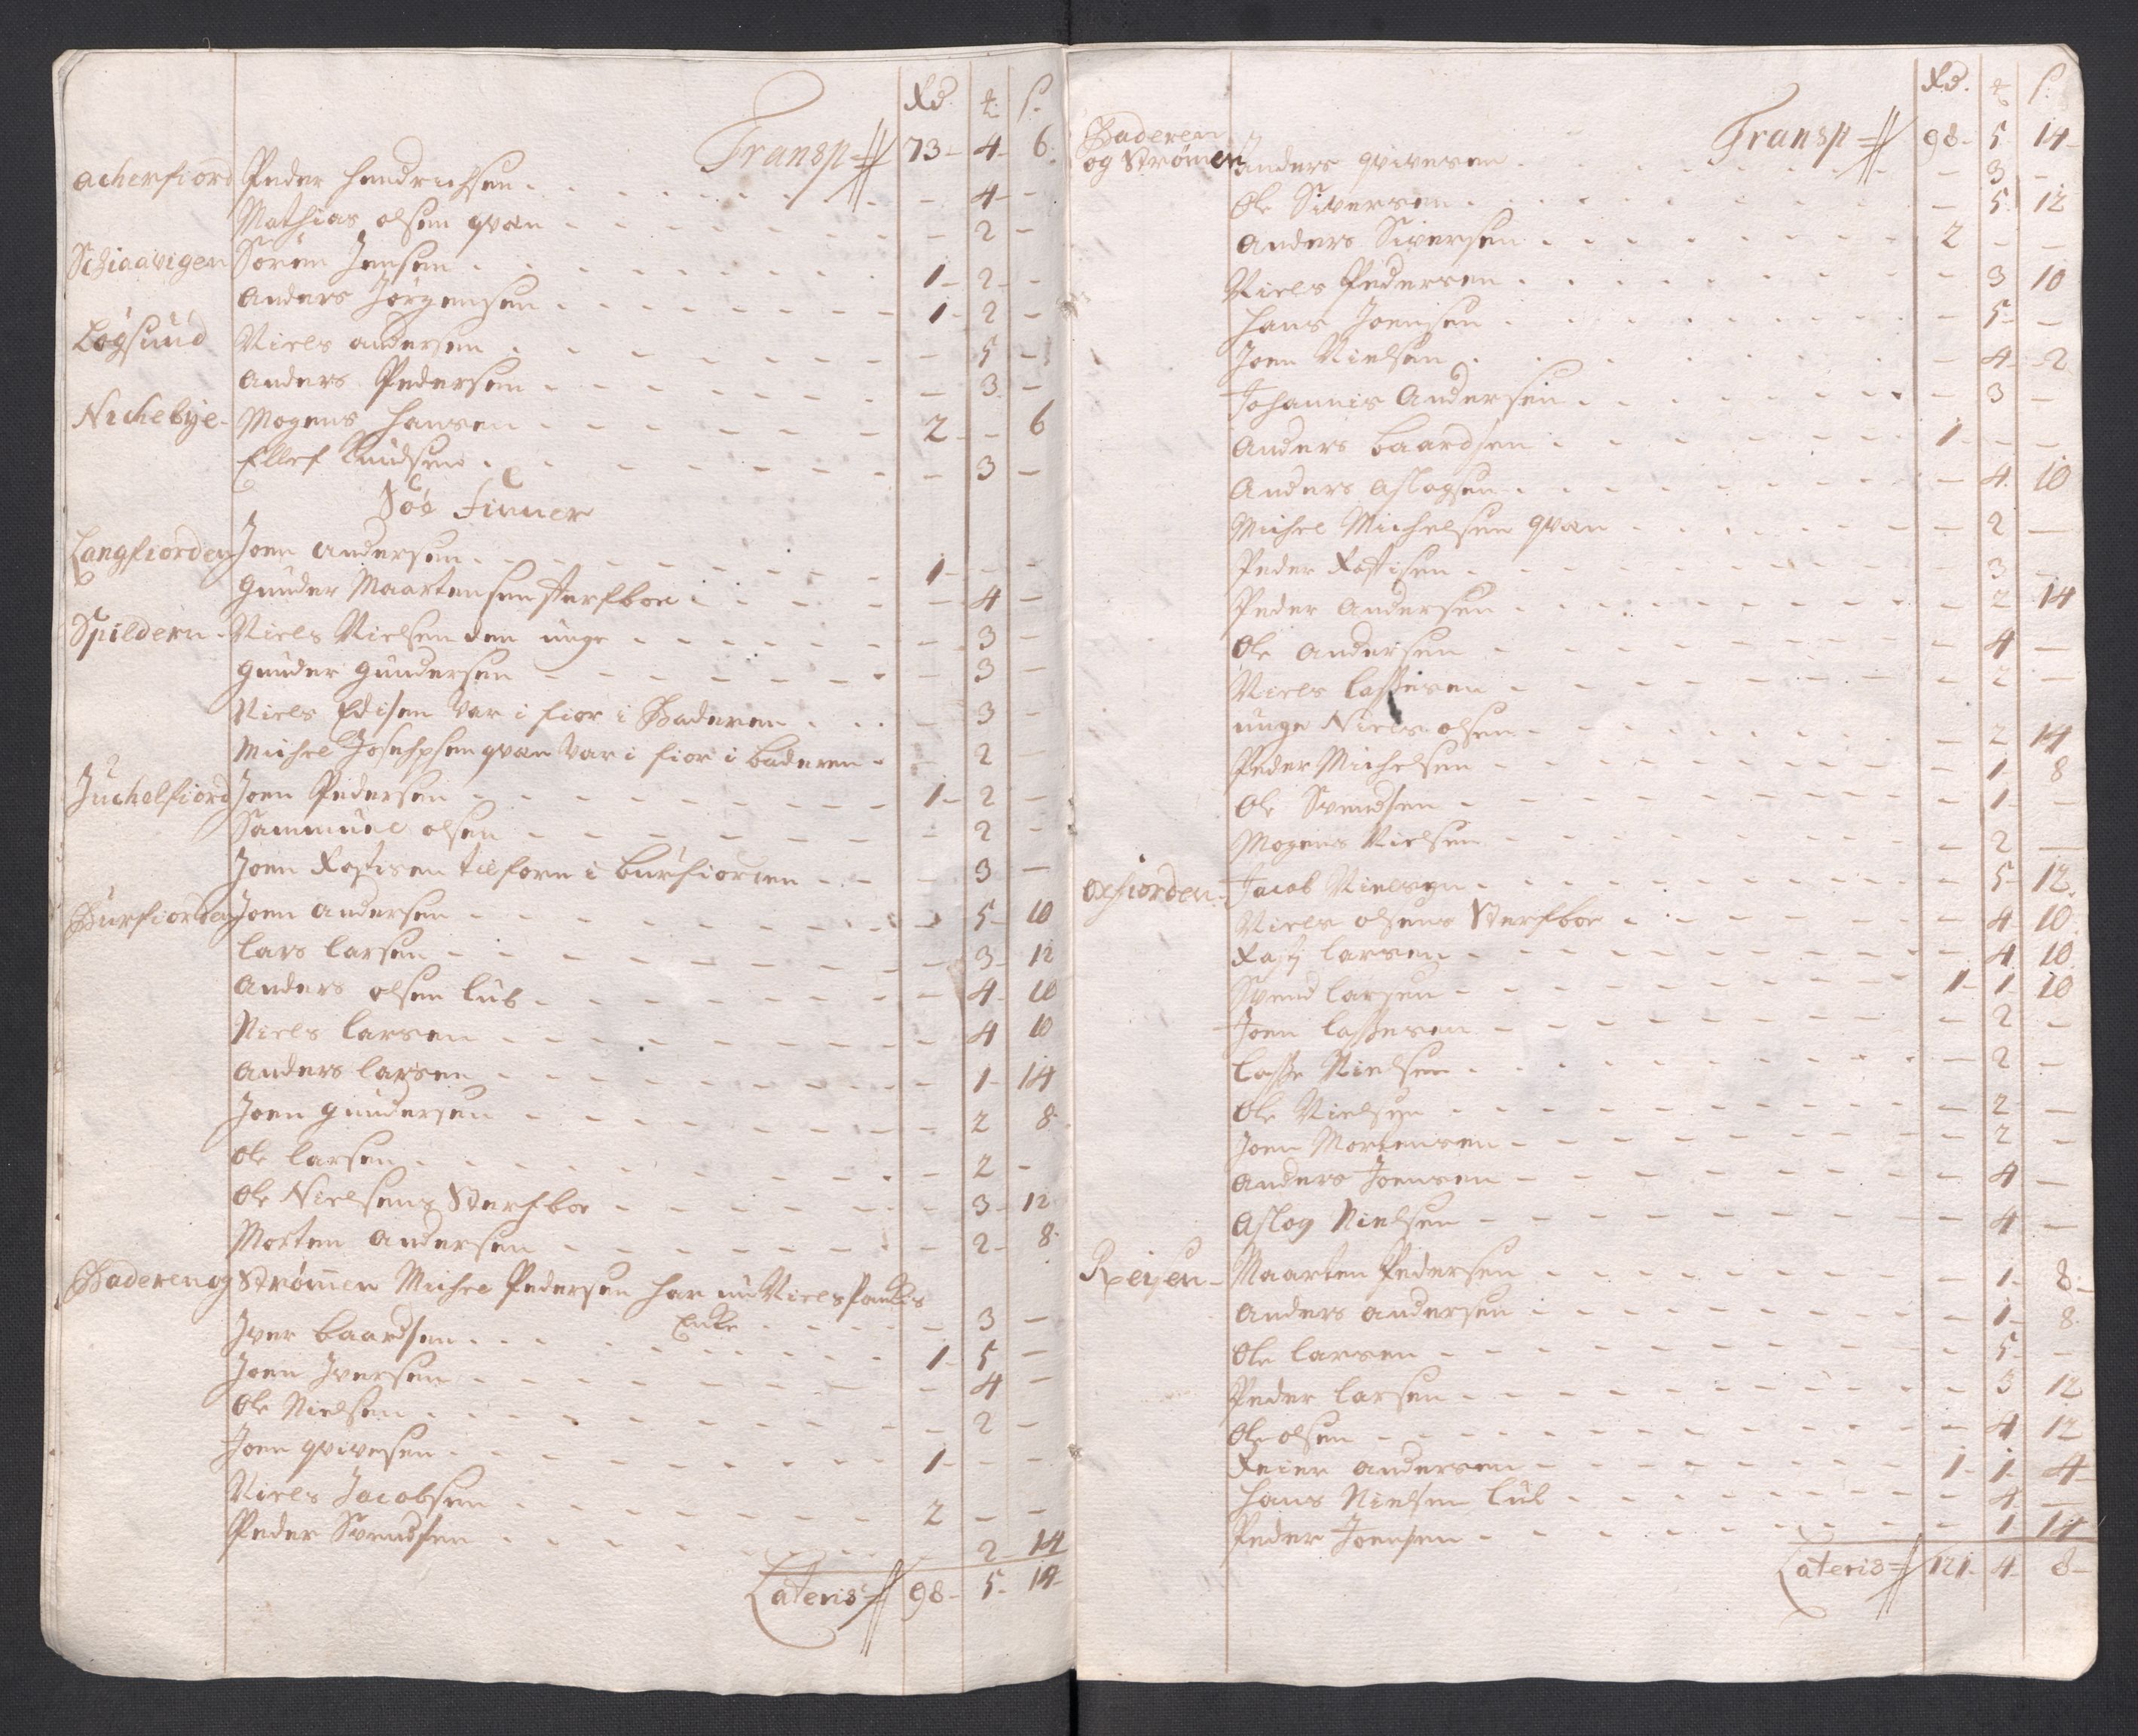 Rd. ₰. s.
Transp 73 - 4 - 6.
acherfiord Peder Hendrichsen - 4 -
Mathias olsen qvæn - 2 -
Schiaavigen Søren Jensen 1 - 2 -
Anders Jørgensen 1 - 2 -
Løgsund Niels andersen - 5 -
Anders Pedersen - 3 -
Nichebye Mogens Hansen 2 - 6
Ellef Knudsen - 3 -
Søe Finner
Langfiorden Joen Andersen 1 - -
Gunder Maartensen Sterfboe - 4 -
Spildern Niels Nielsen den unge - 3 -
Gunder Gundersen - 3 -
Niels Edisen var i fior i Baderen - 3 -
Michel Josephsen qvæn var i fior i baderen - 2 -
Juchelfiord Joen Pedersen 1 - 2 -
Sammuel olsen - 2 -
Joen Rastisen tilforn i burfiorden - 3 -
Burfiorden Joen andersen - 5 - 10
Lars Larsen - 3 - 12
Anders olsen lub - 4 - 10
Niels Larsen - 4 10
Anders Larsen - 1 - 14
Joen Gundersen - 2 8
Ole Larsen - 2 -
Ole Nielsens Sterfboe - 3 - 12
Morten Andersen - 2 - 8
Baderen og Strømen Michel Pedersen har nu Niels Panckis
Encke - 3 -
Iver Baardsen 1 - 5 -
Joen Iversen - 4 -
Ole Nielsen - 2 -
Joen qvivesen 1 - -
Niels Jacobsen 2 - -
Peder Svendsen - 2 - 14
Lateris 98 - 5 - 14
Rd. ₰ s.
Baderen
Transp 98 - 5 14
og Strømen anders qvivesen - 3 -
Ole Siversen - 5 12
Anders Siversen 2 - -
Niels Pedersen - 3 10
Hans Joensen - 5 -
Joen Nielsen - 4 - 2
Johannis Andersen - 3 -
Anders Baardsen 1 - -
Anders Aslagsen - 4 10
Michel Michelsen qvæn - 2 -
Peder Rastisen - 3 -
Peder Andersen - 2 14
Ole Andersen - 4 -
Niels Lassesen - 2 -
unge Niels olsen - 2 14
Peder Michelsen - 1 8
Ole Svendsen - 1 -
Mogens Nielsen - 2 -
oxfiorden Jacob Nielsen - 5 - 12
Niels olsens Sterfboe - 4 10
Rasti Larsen - 4 10
Svend Larsen 1 - 1 - 10
Joen Lassesen - 2 -
Lasse Nielsen - 2 -
Ole Nielsen - 2 -
Joen Mortensen - 2 -
Anders Joensen - 4 -
Aslag Nielsen - 4 -
Reisen Maarten Pedersen - 1 - 8
Anders andersen - 1 - 8
Ole Larsen - 5 -
Peder Larsen - 3 12
Ole olsen - 4 12
Reier andersen 1 - 1 - 4
Hans Nielsen lub - 4 -
Peder Joensen - 1 14
Lateris 121 - 4 - 8